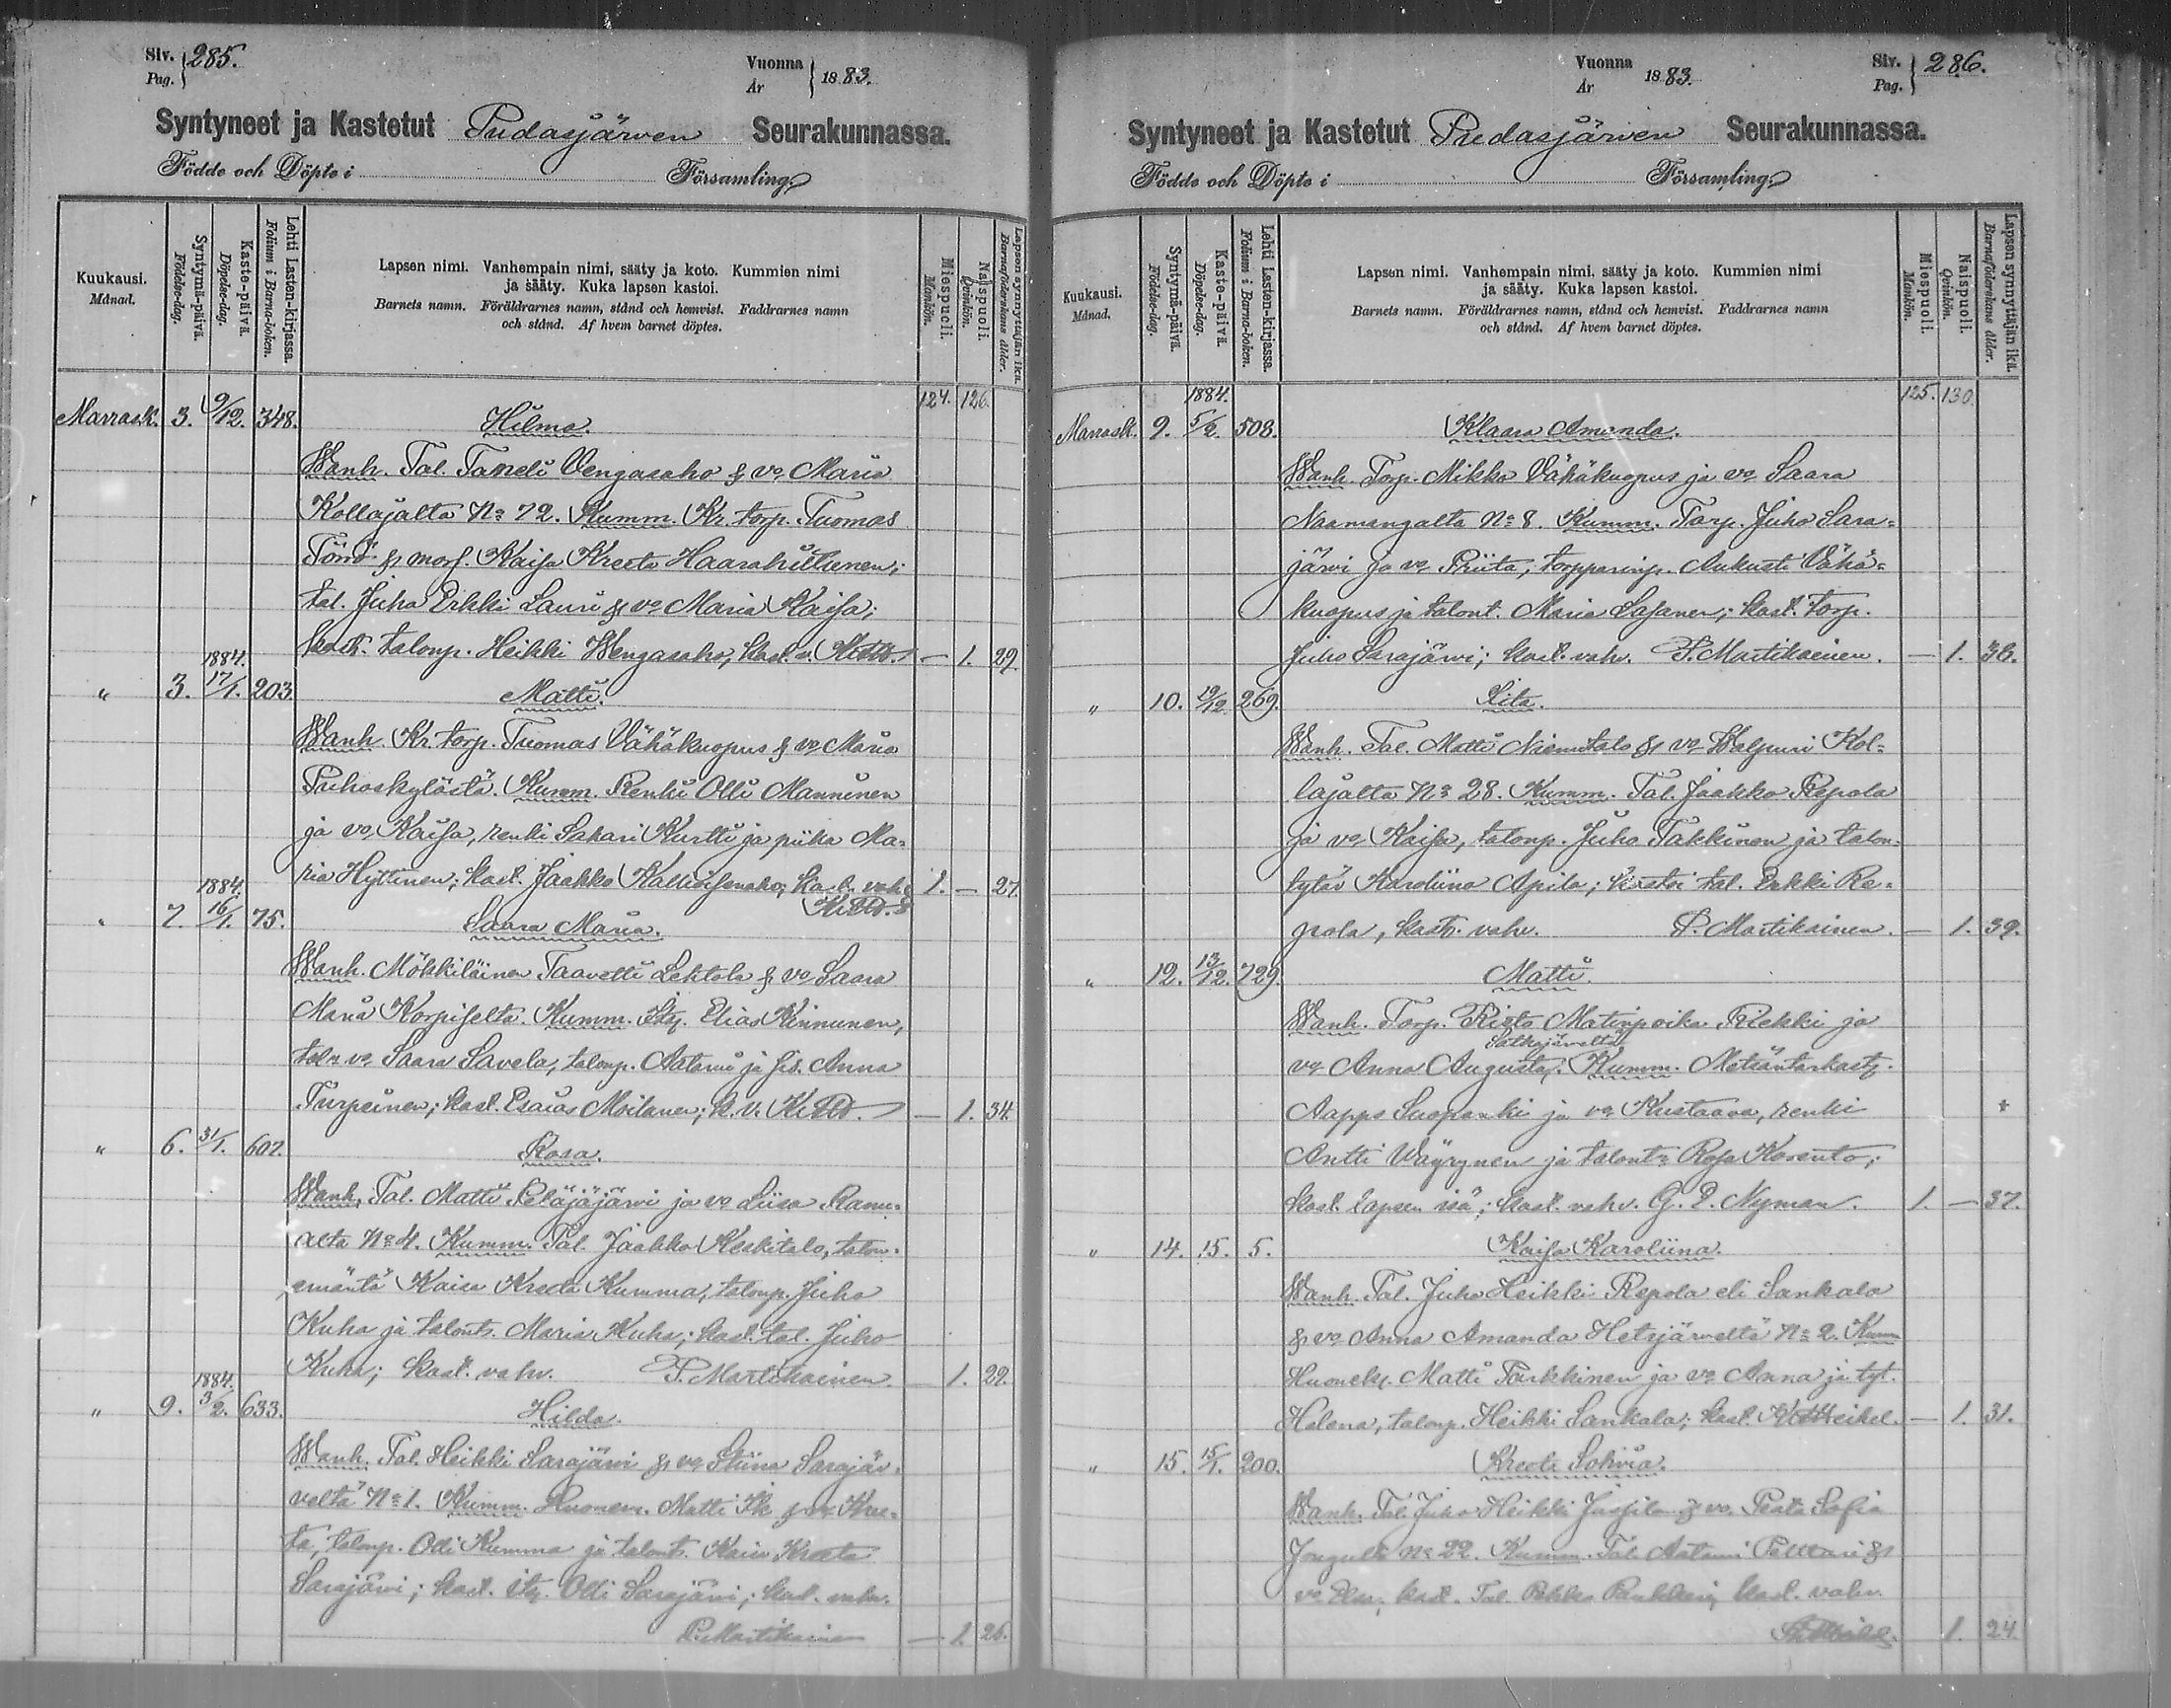 Siv. Pag. } 285.
Vuonna År } 1883.
Syntyneet ja Kastetut Pudasjärven Seurakunnassa.
Födde och Döpte i Församling
Kuukausi. Månad.
Syntymä-päivä. Födelse-dag.
Kaste-päivä. Döpelse-dag.
Lehti Lasten-kirjassa. Folium i Barna-boken.
Lapsen nimi. Vanhempain nimi, sääty ja koto. Kummien nimi
ja sääty. Kuka lapsen kastoi.
Barnets namn. Föräldrarnes namn, stånd och hemvist. Faddrarnes namn
och stånd. Af hvem barnet döptes.
Miespuoli. Mankön.
Naispuoli. Qvinkön.
Lapsen synnyttäjän ikä. Barnaföderskans ålder.
124. 126.
Marrask. 3. 9/12. 348. Hilma.
Wanh. Tal. Taneli Vengasaho & vo Maria
Kollajalta No 72. Kumm. Kr. torp. Tuomas
Törrö & morf. Kaisa Kreeta
tal. Juho Erkki Lauri & vo Maria Kaisa;
talonp. Heikki Wengasaho; kast. v. — 1. 29.
1884.
" 3. 17/1. 203. Matti.
Wanh. Kr. torp. Tuomas Vähäkuopus & vo Maria
Puhoskylästä. Kumm. Renki Olli Manninen
ja vo Kaisa, renki Sakari Kurtti ja piika Ma-
ria Hyttinen; kast. Jaakko kast. vahv. 1. — 27.
1884.
" 7. 16/1. 75. Saara Maria.
Wanh. Mökkiläinen Taavetti Lehtola & vo Saara
Maria Korpiselta. Kumm. Itg. Elias Kinnunen,
vo Saara Savela, talonp. Aatami ja sis. Anna
Turpeinen; kast. Esaias Moilanen; k. v. — 1. 34.
" 6. 31/1. 607. Rosa.
Wanh. Tal. Matti Petäjäjärvi ja vo Liisa Ranu-
alta No 4. Kumm. Tal. Jaakko Keskitalo, talon-
emäntä Kaisa Kreeta Kumma, talonp. Juho
Kuha ja talont. Maria Kuha; kast. tal. Juho
Kuha; kast. vahv. P. Martikainen. 1. 29.
1884.
" 9. 3/2. 633. Hilda.
Wanh. Tal. Heikki Sarajärvi & vo Stiina Sarajär-
veltä No 1. Kumm. Huonem. Matti & vo Kree-
ta, talonp. Olli Kumma ja talont. Kaisa Kreeta
Sarajärvi; kast. itg. Olli Sarajärvi; kast. vahv.
P. Martikainen — 1. 26.
Vuonna År 1883.
Siv. Pag. } 286.
Syntyneet ja Kastetut Pudasjärven Seurakunnassa.
Födde och Döpte i Församling
Kuukausi. Månad.
Syntymä-päivä. Födelse-dag.
Kaste-päivä. Döpelse-dag.
Lehti Lasten-kirjassa. Folium i Barna-boken.
Lapsen nimi. Vanhempain nimi, sääty ja koto. Kummien nimi
ja sääty. Kuka lapsen kastoi.
Barnets namn. Föräldrarnes namn, stånd och hemvist. Faddrarnes namn
och stånd. Af hvem barnet döptes.
Miespuoli. Mankön.
Naispuoli. Qvinkön.
Lapsen synnyttäjän ikä. Barnaföderskans ålder.
1884. 125. 130.
Marrask. 9. 5/2. 508. Klaara Amanda.
Wanh. Torp. Mikko Vähäkuopus ja vo Saara
Naamangalta No 8. Kumm. Torp. Juho Sara-
järvi ja vo Priita, torpparinp. Aukusti Vähä-
kuopus ja talont. Maria Sassanen; kast. torp.
Juho Sarajärvi; kast. vahv. P. Martikainen. — 1. 36.
" 10. 19/12 269. Iita.
Wanh. Tal. Matti Niemitalo & vo Walpuri Kol-
lajalta No 28. Kumm. Tal. Jaakko Repola
ja vo Kaisa, talonp. Juho Takkinen ja talon-
tytär Karoliina Apila; kastoi tal. Erkki Re-
pola, kast. vahv. P. Martikainen. — 1. 39.
" 12. 13/12. 729. Matti.
Wanh. Torp. Risto Matinpoika Riekki ja
vo Anna Augusta. Kumm. Metsäntarkast.
Aappo Suopanki ja vo Kustaava, renki
Antti Wäyrynen ja talont. Rosa Kovento;
kast. lapsen isä; kast. vahv. G. E. Nyman. 1. — 37.
" 14. 15. 5. Kaisa Karoliina.
Wanh. Tal. Juho Heikki Repola eli Sankala
& vo Anna Amanda Hetejärveltä No 2. Kumm
Huonem. Matti Parkkinen ja vo Anna ja tyt.
Helena, talonp. Heikki Sankala; kast. — 1. 31.
" 15. 15/1. 200. Kreeta Sohvia.
Wanh. Tal. Juho Heikki Jussila & vo Peata Sofia
Jongulta No 22. Kumm. Tal. Aatami Pelttari &
vo Elsa; kast. Tal. Pekka kast. vahv.
1. 24.